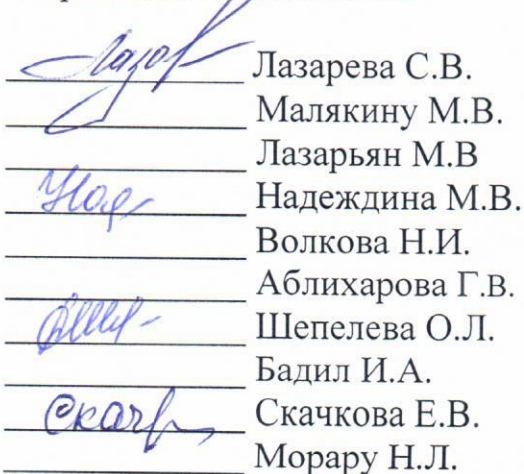 Лазарева С.В.
Малякину М.В.
Лазарьян М.В
Надеждина М.В.
Волкова Н.И.
Аблихарова Г.В.
Шепелева О.Л.
Бадил И.А.
Скачкова Е.В.
Морару Н.Л.